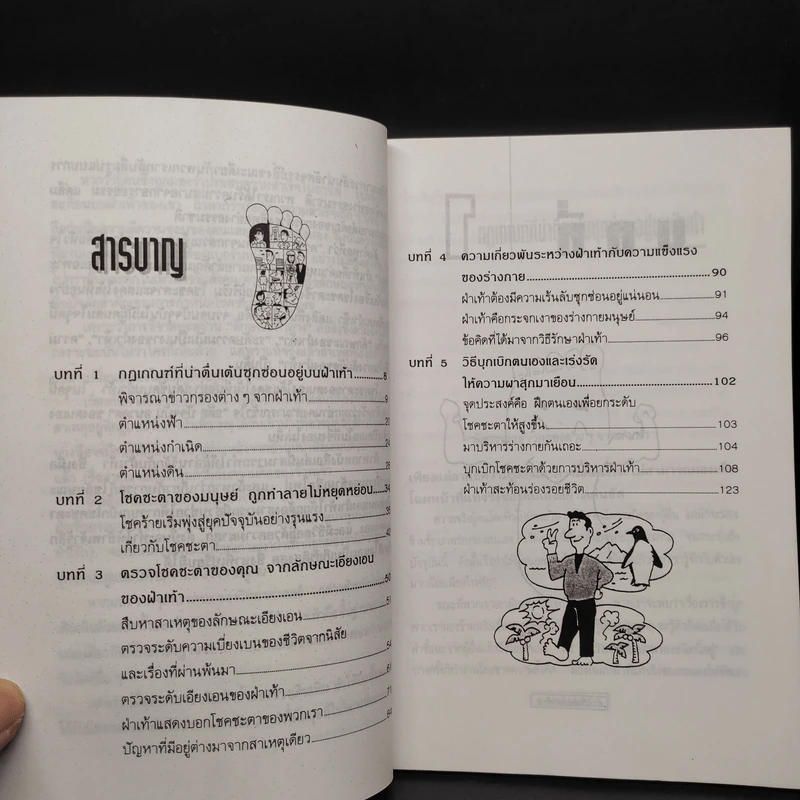 สารบาญ
บทที่ 1 กฎเกณฑ์ที่น่าตื่นเต้นซุกซ่อนอยู่บนฝ่าเท้า 8
พิจารณาข่าวกรองต่าง ๆ จากฝ่าเท้า 9
ตำแหน่งฟ้า
ตำแหน่งกำเนิด
ตำแหน่งดิน
บทที่ 2 โชคชะตาของมนุษย์ ถูกทำลายไม่หยุดหย่อน 34
โชคร้ายเริ่มพุ่งสู่ยุคปัจจุบันอย่างรุนแรง
เกี่ยวกับโชคชะตา
บทที่ 3 ตรวจโชคชะตาของคุณ จากลักษณะเอียงเอน
ของฝ่าเท้า 50
สืบหาสาเหตุของลักษณะเอียงเอน
ตรวจระดับความเบี่ยงเบนของชีวิตจากนิสัย
และเรื่องที่ผ่านพ้นมา
ตรวจระดับเอียงเอนของฝ่าเท้า 71
ฝ่าเท้าแสดงบอกโชคชะตาของพวกเรา
ปัญหาที่มีอยู่ต่างมาจากสาเหตุเดียว
บทที่ 4 ความเกี่ยวพันระหว่างฝ่าเท้ากับความแข็งแรง
ของร่างกาย 90
ฝ่าเท้าต้องมีความเร้นลับซุกซ่อนอยู่แน่นอน 91
ฝ่าเท้าคือกระจกเงาของร่างกายมนุษย์ 94
ข้อคิดที่ได้มาจากวิธีรักษาฝ่าเท้า 96
บทที่ 5 วิธีบุกเบิกตนเองและเร่งรัด
ให้ความผาสุกมาเยือน 102
จุดประสงค์คือ ฝึกตนเองเพื่อยกระดับ
โชคชะตาให้สูงขึ้น 103
มาบริหารร่างกายกันเถอะ 104
บุกเบิกโชคชะตาด้วยการบริหารฝ่าเท้า 108
ฝ่าเท้าสะท้อนร่องรอยชีวิต 123